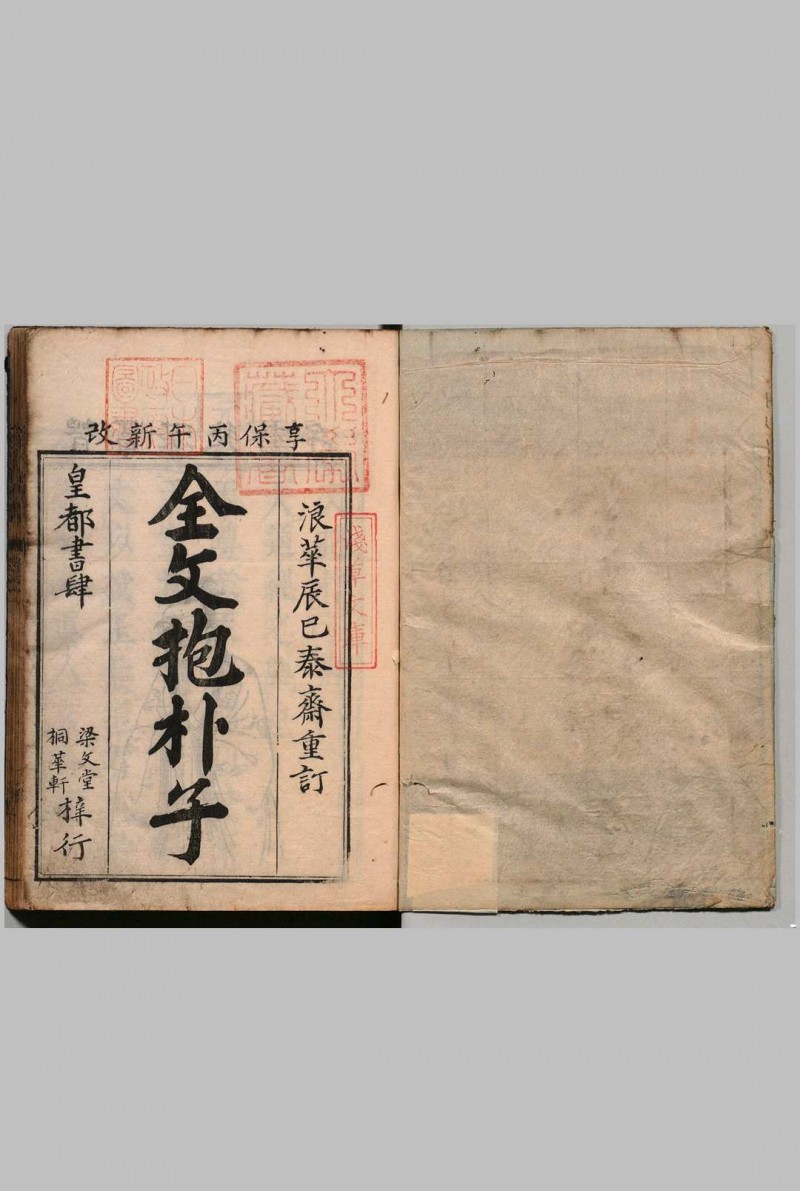 享保丙午新改
浪華辰巳泰齋重訂
全文抱朴子
皇都書肆
梁文堂
桐華軒
梓行
淺草文庫